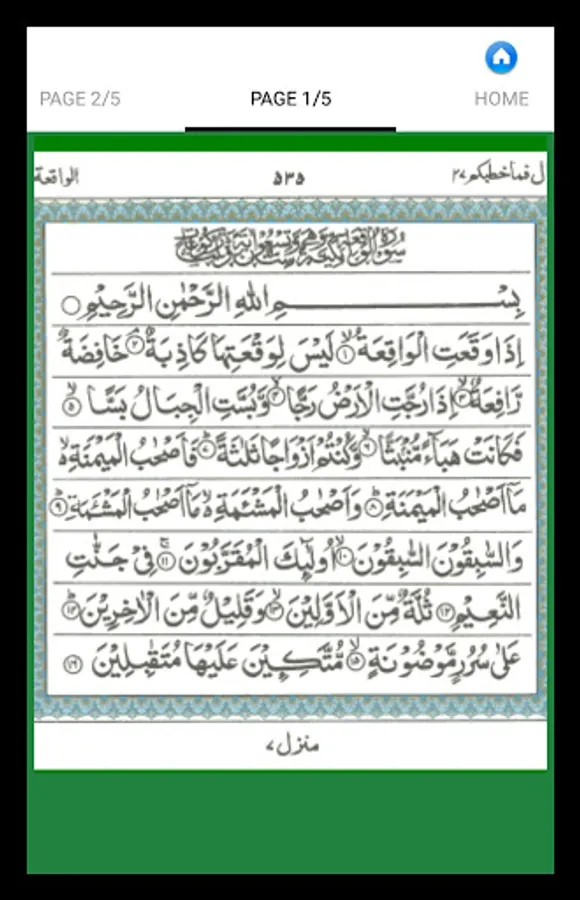 PAGE 2/5 PAGE 1/5 HOME
قال فماخطبكم ٢٧ ۵۳۵ الواقعة
بِسْمِ اللهِ الرَّحْمٰنِ الرَّحِيْمِ ○
اِذَا وَقَعَتِ الْوَاقِعَةُ ۙ﴿۱﴾ لَيْسَ لِوَقْعَتِهَا كَاذِبَةٌ ۘ﴿۲﴾ خَافِضَةٌ
رَّافِعَةٌ ۙ﴿۳﴾ اِذَا رُجَّتِ الْاَرْضُ رَجًّا ۙ﴿۴﴾ وَّبُسَّتِ الْجِبَالُ بَسًّا ۙ﴿۵﴾
فَكَانَتْ هَبَآءً مُّنْۢبَثًّا ۙ﴿۶﴾ وَّكُنْتُمْ اَزْوَاجًا ثَلٰثَةً ؕ﴿۷﴾ فَاَصْحٰبُ الْمَيْمَنَةِ ۙ
مَاۤ اَصْحٰبُ الْمَيْمَنَةِ ؕ﴿۸﴾ وَاَصْحٰبُ الْمَشْـَٔمَةِ ۙ مَاۤ اَصْحٰبُ الْمَشْـَٔمَةِ ؕ﴿۹﴾
وَالسّٰبِقُوْنَ السّٰبِقُوْنَ ۙ﴿۱۰﴾ اُولٰٓئِكَ الْمُقَرَّبُوْنَ ۚ﴿۱۱﴾ فِيْ جَنّٰتِ
النَّعِيْمِ ﴿۱۲﴾ ثُلَّةٌ مِّنَ الْاَوَّلِيْنَ ۙ﴿۱۳﴾ وَقَلِيْلٌ مِّنَ الْاٰخِرِيْنَ ؕ﴿۱۴﴾
عَلٰى سُرُرٍ مَّوْضُوْنَةٍ ۙ﴿۱۵﴾ مُّتَّكِـِٕيْنَ عَلَيْهَا مُتَقٰبِلِيْنَ ﴿۱۶﴾
منزل ٧